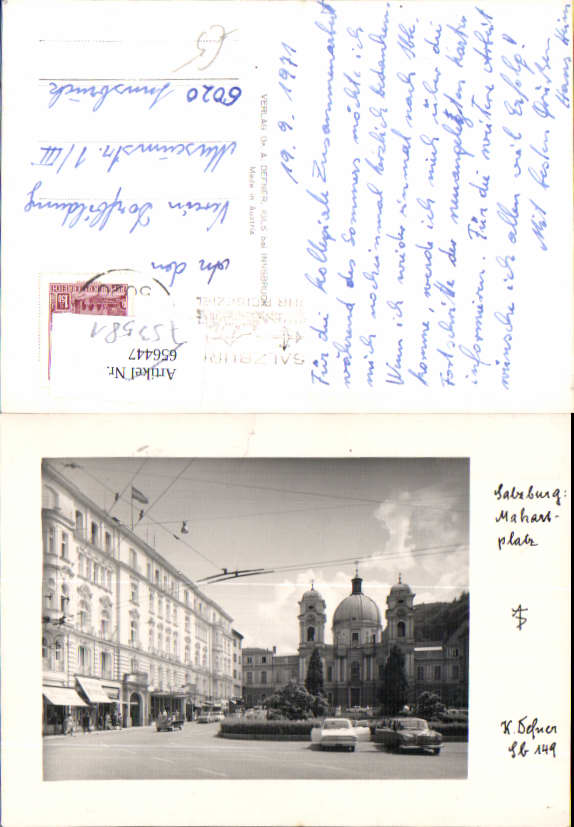 19.9.1971
Für die kollegiale Zusammenarbeit
während des Sommers möchte ich
mich nocheinmal herzlich bedanken.
Wenn ich wieder einmal nach Ibk.
komme, werde ich mich über die
Fortschritte der neuangelegten Kartei
informieren. Für die weitere Arbeit
wünsche ich allen viel Erfolg!
Mit besten Grüßen
Hans
VERLAG Dr. A. DEFNER, IGLS bei INNSBRUCK
Made in Austria
SALZBURG
An den
Verein Dorfbildung
Museumstr. 1/III
6020 Innsbruck
1.50
753581
Artikel Nr.
656447
Salzburg:
Makart-
platz
K. Defner
Sb 149